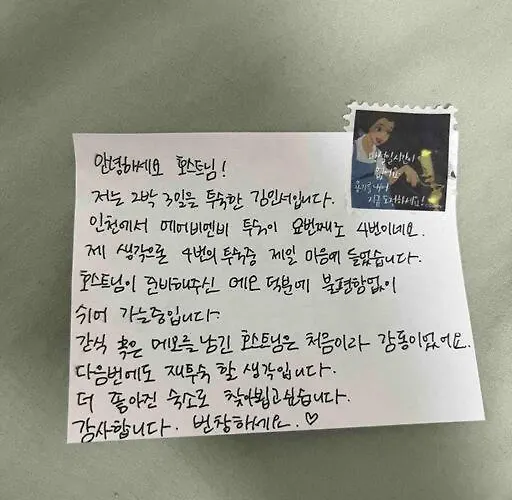 안녕하세요 호스트님!
저는 2박 3일을 투숙한 김인서입니다.
인천에서 에어비엔비 투숙이 요번째노 4번이네요.
제 생각으론 4번의 투숙중 제일 마음에 들었습니다.
호스트님이 준비해주신 메모 덕분에 불편함없이
쉬어 가는중입니다.
간식 혹은 메모를 남긴 호스트님은 처음이라 감동이었어요.
다음번에도 재투숙 할 생각입니다.
더 좋아진 숙소로 찾아뵙고싶습니다.
감사합니다. 번창하세요. ♡
시간이
없어요
용기를 내어
지금 도전하세요!